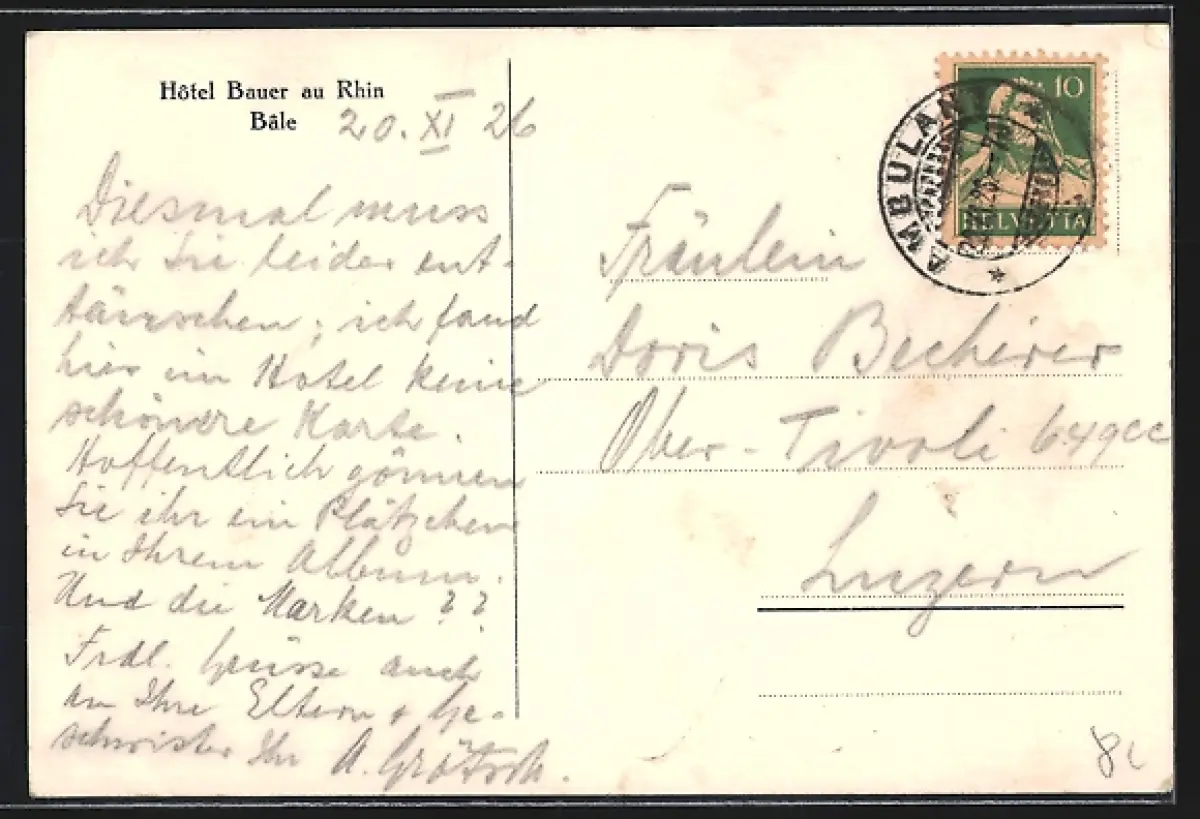 Hôtel Bauer au Rhin
Bâle
20. XI 26
Diesmal muss
ich Sie leider ent-
täuschen; ich fand
hier im Hotel keine
schönere Karte.
Hoffentlich gönnen
Sie ihr ein Plätzchen
in Ihrem Album.
Und die Marken??
Frdl. Grüsse auch
an Ihre Eltern + Ge-
schwister Ihr A.
10
HELVETIA
AMBULANT
Fräulein
Doris Becherer
Ober-Tivoli 649cc
Luzern